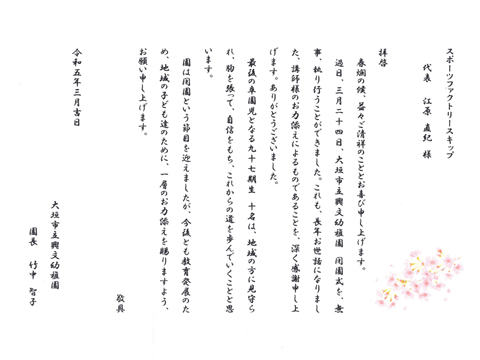 スポーツファクトリースキップ
代表　江原　直紀　様
拝啓
春爛の候、益々ご清祥のこととお喜び申し上げます。
過日、三月二十四日、大垣市立興文幼稚園　閉園式を、無
事、執り行うことができました。これも、長年お世話になりまし
た、講師様のお力添えによるものであることを、深く感謝申し上
げます。ありがとうございました。
最後の卒園児となる九十七期生　十名は、地域の方に見守ら
れ、胸を張って、自信をもち、これからの道を歩んでいくことと思
います。
園は閉園という節目を迎えましたが、今後とも教育発展のた
め、地域の子ども達のために、一層のお力添えを賜りますよう、
お願い申し上げます。
敬具
令和五年三月吉日
大垣市立興文幼稚園
園長　竹中　智子